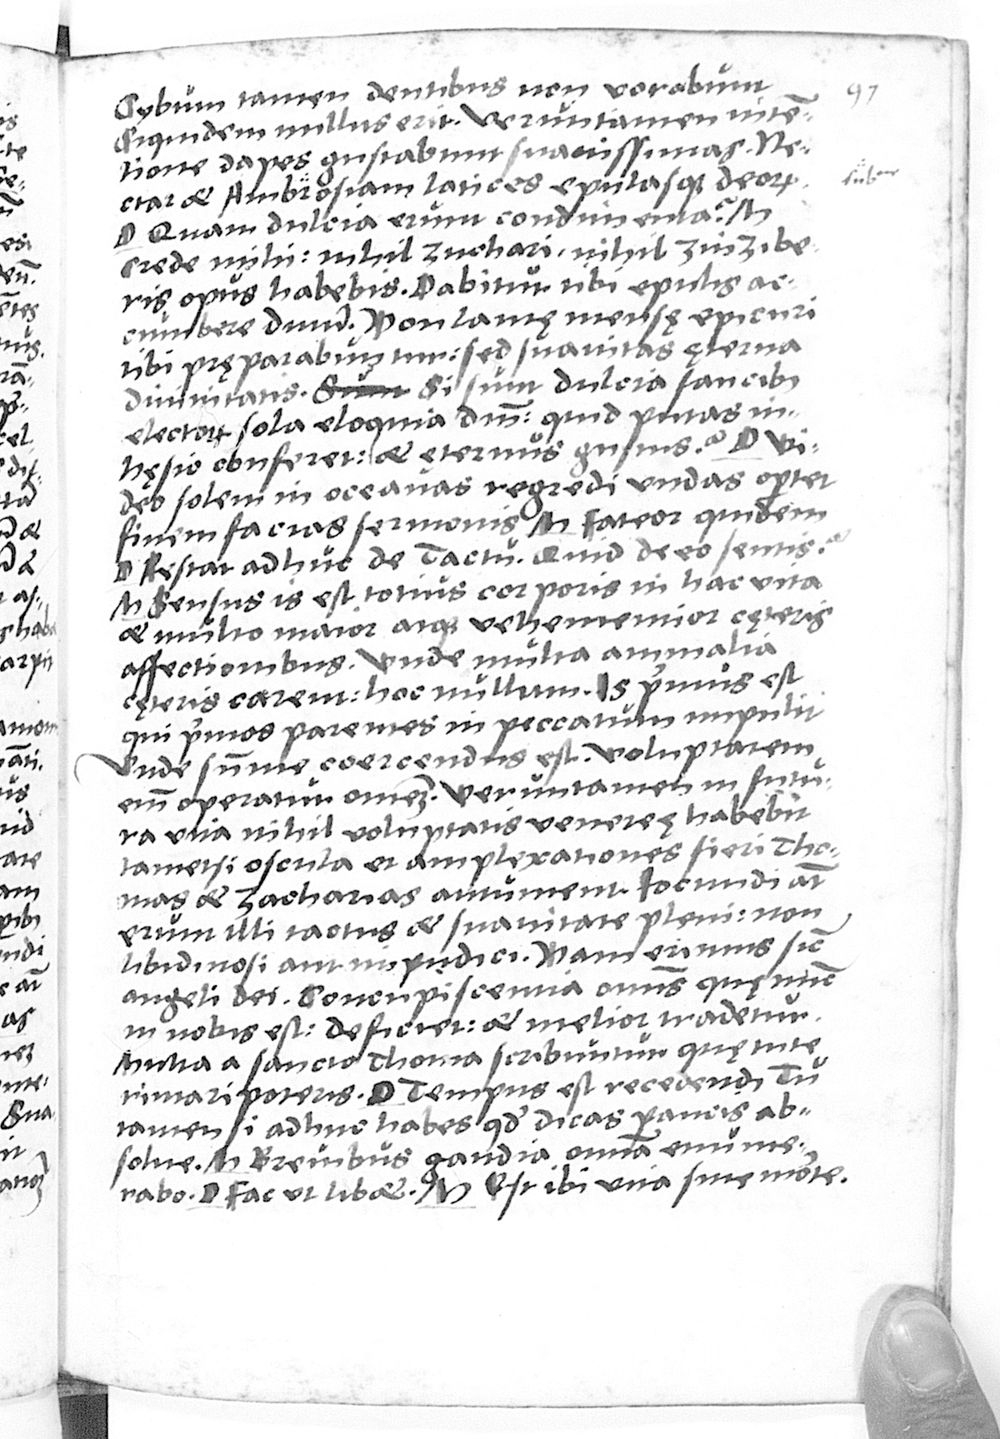 97
Cybum tamen dentibus non vorabunt
siquidem nullus erit. Veruntamen intē-
tione dapes gustabunt suauissimas. Ne-
ctar & Ambrosiam latices epulasqꝫ deoꝝ.
D Quam dulcia erunt condimenta? M
Crede mihi: nihil zuchari, nihil zinzibe-
ris opus habebis. Dabitur tibi epulis ac-
cumbere diuū. Non lautę mensę epicuri
tibi pręparabuntur: sed suauitas ęterna
diuinitatis. Sunt Si sunt dulcia faucibꝰ
electoꝝ sola eloquia diūa: quid putas in-
hęsio conferet: & ęternus gustus? D Vi-
deo solem in oceanas regredi vndas oportet
finem facias sermonis M Fateor quidem
D Restat adhuc de Tactu. Quid de eo sentis?
M Sensus is est totius corporis in hac vita
& multo maior atqꝫ vehementior cęteris
affectionibus. Vnde multa animalia
cęteris carent: hoc nullum. Is p̓mus est
qui p̓mos parentes in peccatum impulit
Vnde sūme coercendus est. Voluptatem
em̄ operatur omeꝫ. Veruntamen in futu-
ra vita nihil voluptatis venereę habebit
tametsi oscula et amplexationes fieri Tho-
mas & Zacharias autument. Iocundi aūt
erunt illi tactus & suauitate pleni: non
libidinosi aut impudici. Nam erimus sicᷤ
angeli dei. Concupiscentia omīs quę nūc
in nobis est: deficiet: & melior tradetur.
Multa a sancto Thoma scribuntur quę tute
rimari poteris. D Tempus est recedendi Tu
tamen si adhuc habes qd̓ dicas paucis ab-
solue. M Breuibus gaudia omīa enume-
rabo. D Fac vt lib&. M Est ibi vita sine mōrte.